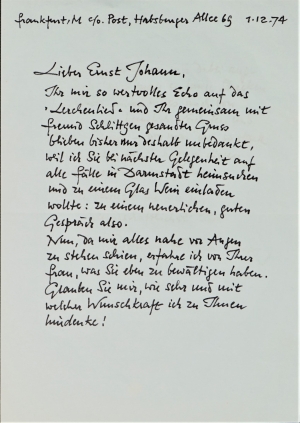 Frankfurt/M c/o. Post, Habsburger Allee 69 1.12.74
Lieber Ernst Johann,
Ihr mir so wertvolles Echo auf das
"Lerchenlied" und Ihr gemeinsam mit
Freund Schlittgen gesandter Gruss
blieben bisher nur deshalb unbedankt,
weil ich Sie bei nächster Gelegenheit auf
alle Fälle in Darmstadt heimsuchen
und zu einem Glas Wein einladen
wollte: zu einem neuerlichen, guten
Gespräch also.
Nun, da mir alles nahe vor Augen
zu stehen schien, erfahre ich von Ihrer
Frau, was Sie eben zu bewältigen haben.
Glauben Sie mir, wie sehr und mit
welcher Wunschkraft ich zu Ihnen
hindenke!